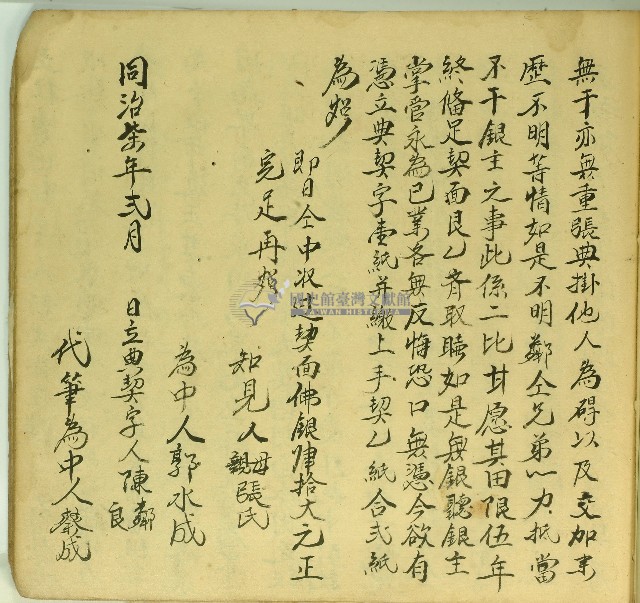 無干亦無重張典掛他人為碍以及交加來
歷不明等情如是不明鄰仝兄弟一力抵當
不干銀主之事此係二比甘愿其田限伍年
終俻足契面艮乙齊取贖如是無銀聽銀主
掌管永為已業各無反悔恐口無憑今欲有
憑立典契字壹紙并繳上手契乙紙合弍紙
為炤
即日仝中收過契面佛銀肆拾大元正
完足再炤
知見人母親張氏
為中人郭水成
同治柒年弍月 日立典契字人陳鄰良
代筆為中人 成
國史館臺灣文獻館
TAIWAN HISTORICA